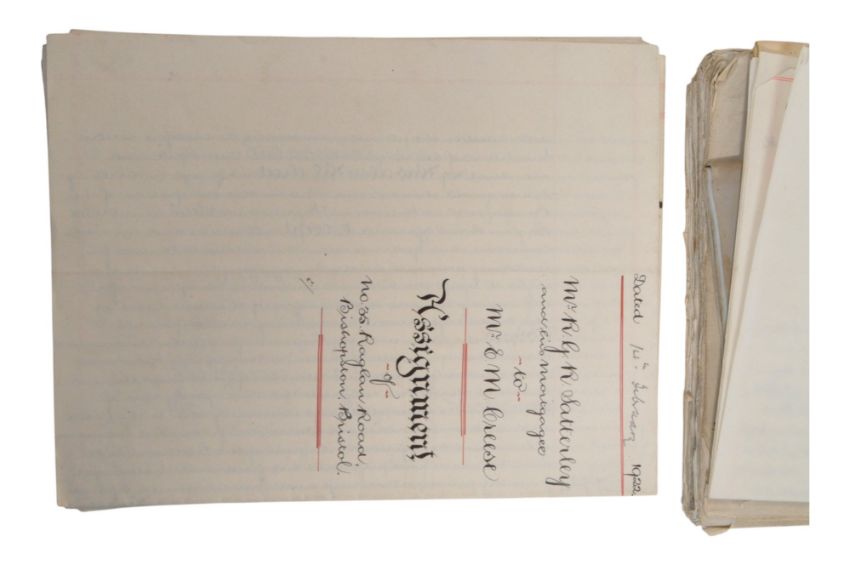 Dated 14th February 1922.
Mr R G R Satterley
and his mortgagee
-to-
Mr E M Creese
Assignment
-of-
No. 35 Raglan Road,
Bishopston, Bristol.